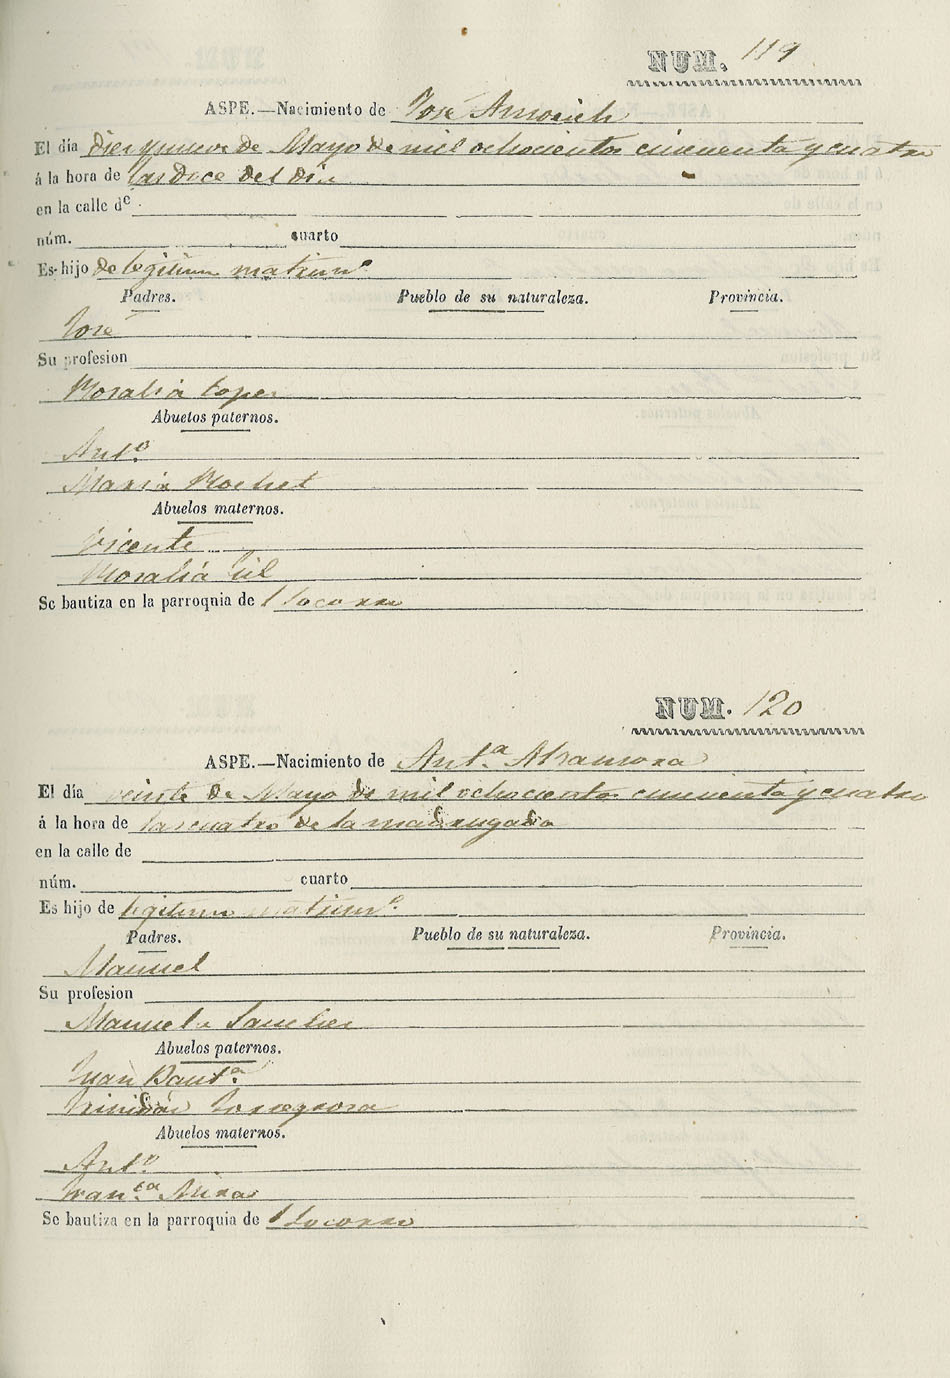 NUM. 119
ASPE.—Nacimiento de José
El día diez y nueve de Mayo de mil ochocientos cincuenta y cuatro
á la hora de las doce del día
en la calle de
núm. cuarto
Es hijo de legitimo matrimº
Padres. Pueblo de su naturaleza. Provincia.
José
Su profesion
Rosalia Lopez
Abuelos paternos.
Antº
Maria
Abuelos maternos.
Vicente
Rosalia Gil
Se bautiza en la parroquia de l Socorro
NUM. 120
ASPE.—Nacimiento de Antª
El día veinte de Mayo de mil ochocientos cincuenta y cuatro
á la hora de las cuatro de la madrugada
en la calle de
núm. cuarto
Es hijo de legitimo matrimº
Padres. Pueblo de su naturaleza. Provincia.
Manuel
Su profesion
Manuela Sanchez
Abuelos paternos.
Juan Bautª
Trinidad
Abuelos maternos.
Antº
Franᶜᵃ Miras
Se bautiza en la parroquia de l Socorro